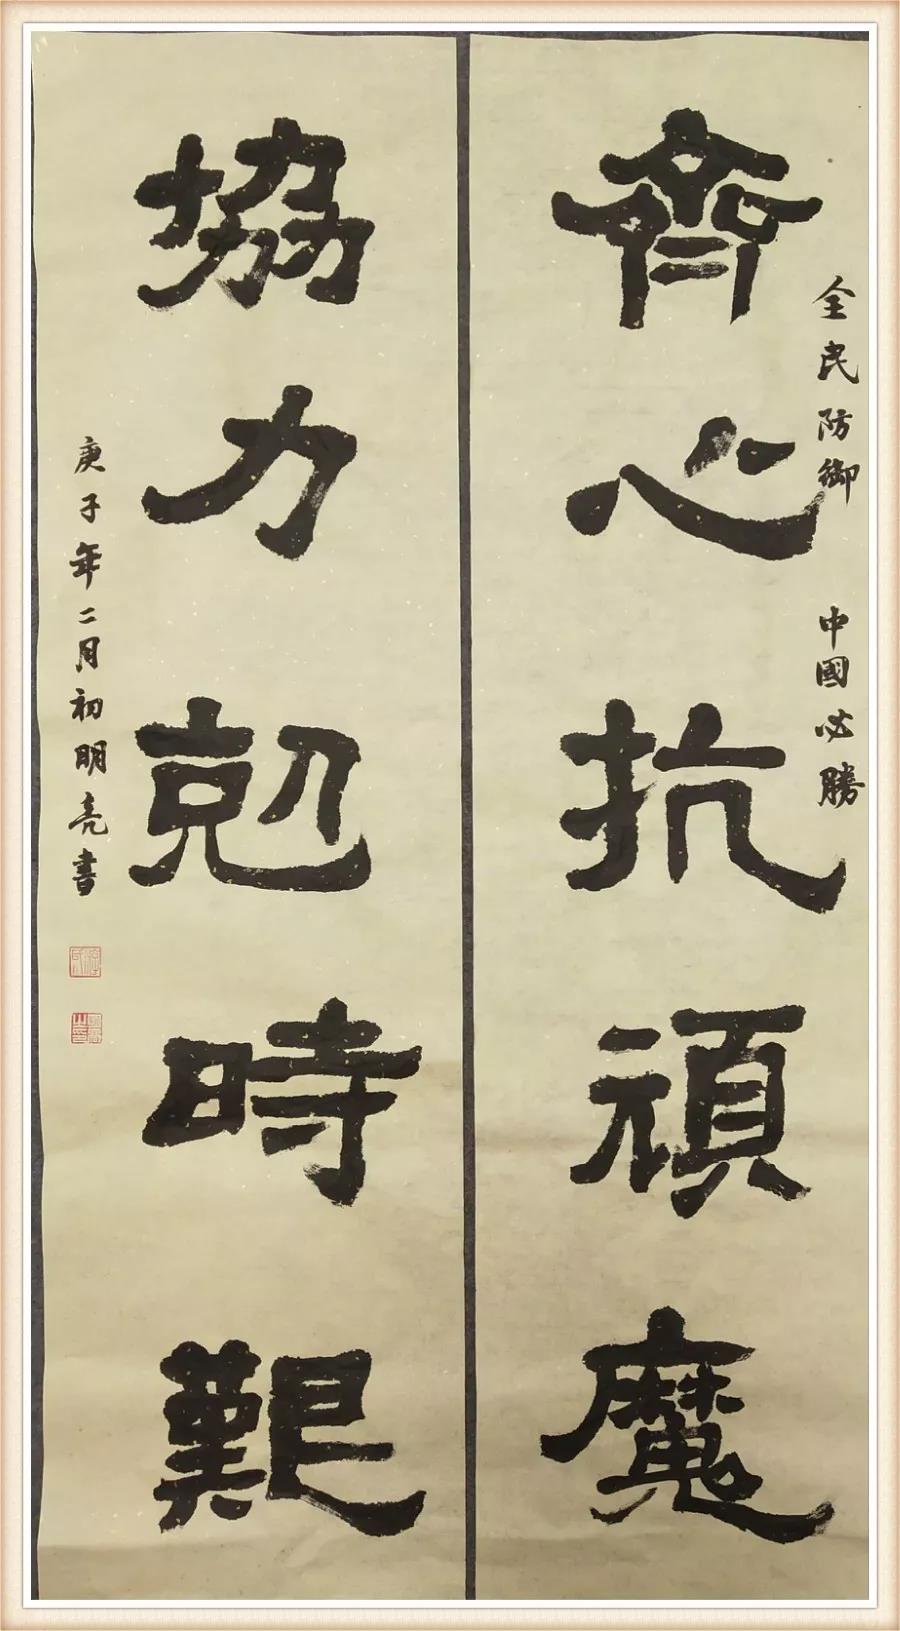 全民防御 中國必勝
齊心抗頑魔
協力剋時艱
庚子年二月初明亮書